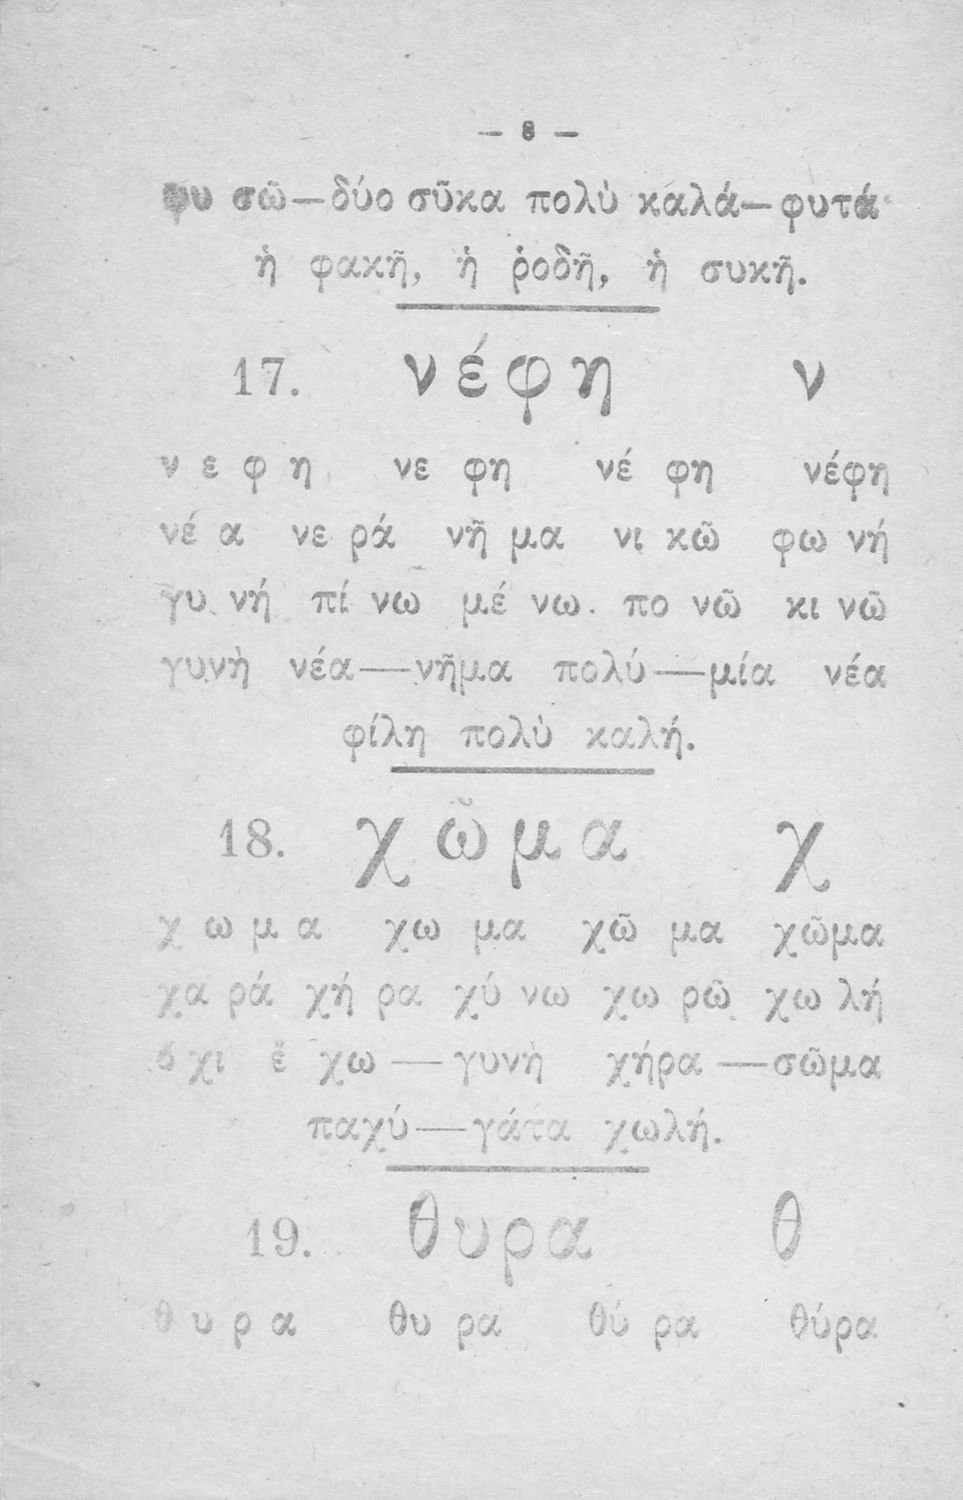 — 8 —
φυ σῶ—δύο σῦκα πολὺ καλά—φυτά
ἡ φακῆ, ἡ ῥοδῆ, ἡ συκῆ.
17. νέφη ν
ν ε φ η νε φη νέ φη νέφη
νέ α νε ρά νῆ μα νι κῶ φω νή
γυ νή πί νω μέ νω. πο νῶ κι νῶ
γυνὴ νέα—νῆμα πολύ—μία νέα
φίλη πολὺ καλή.
18. χῶμα χ
χ ω μ α χω μα χῶ μα χῶμα
χα ρά χή ρα χύ νω χω ρῶ χω λή
ὄ χι ἔ χω — γυνὴ χήρα — σῶμα
παχύ—γάτα χωλή.
19. θυρα θ
θ υ ρ α θυ ρα θύ ρα θύρα